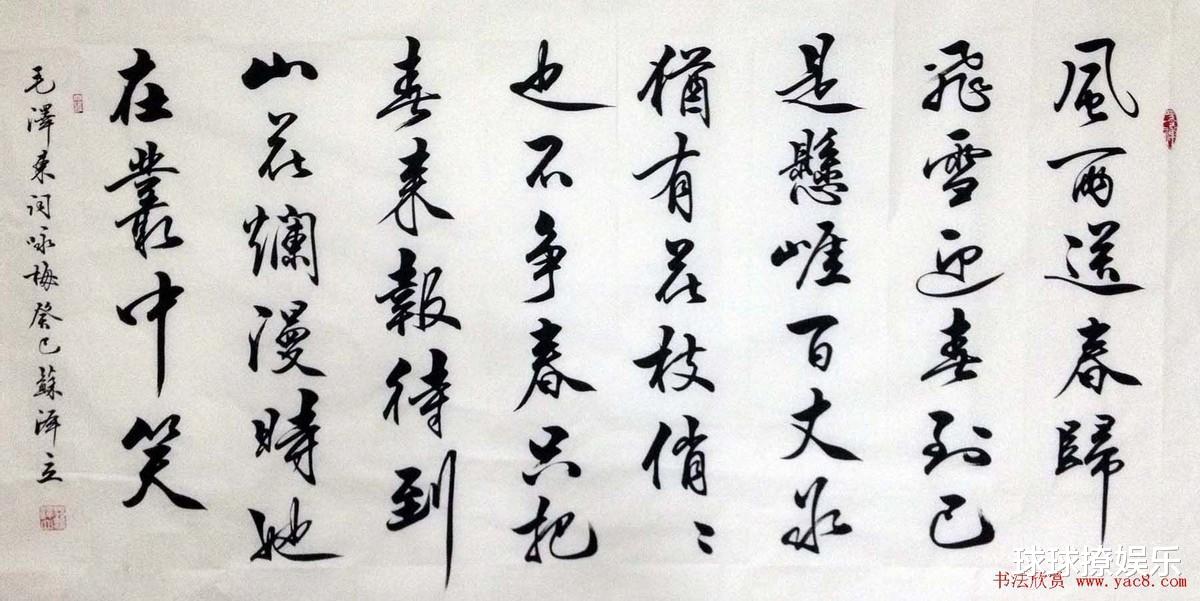 風雨送春歸
飛雪迎春到已
是懸崖百丈冰
猶有花枝俏〻
也不争春只把
春来報待到
山花爛漫時她
在叢中笑
毛澤東词咏梅癸巳蘇泽立
球球撩娱乐
书法欣赏 www.yac8.com